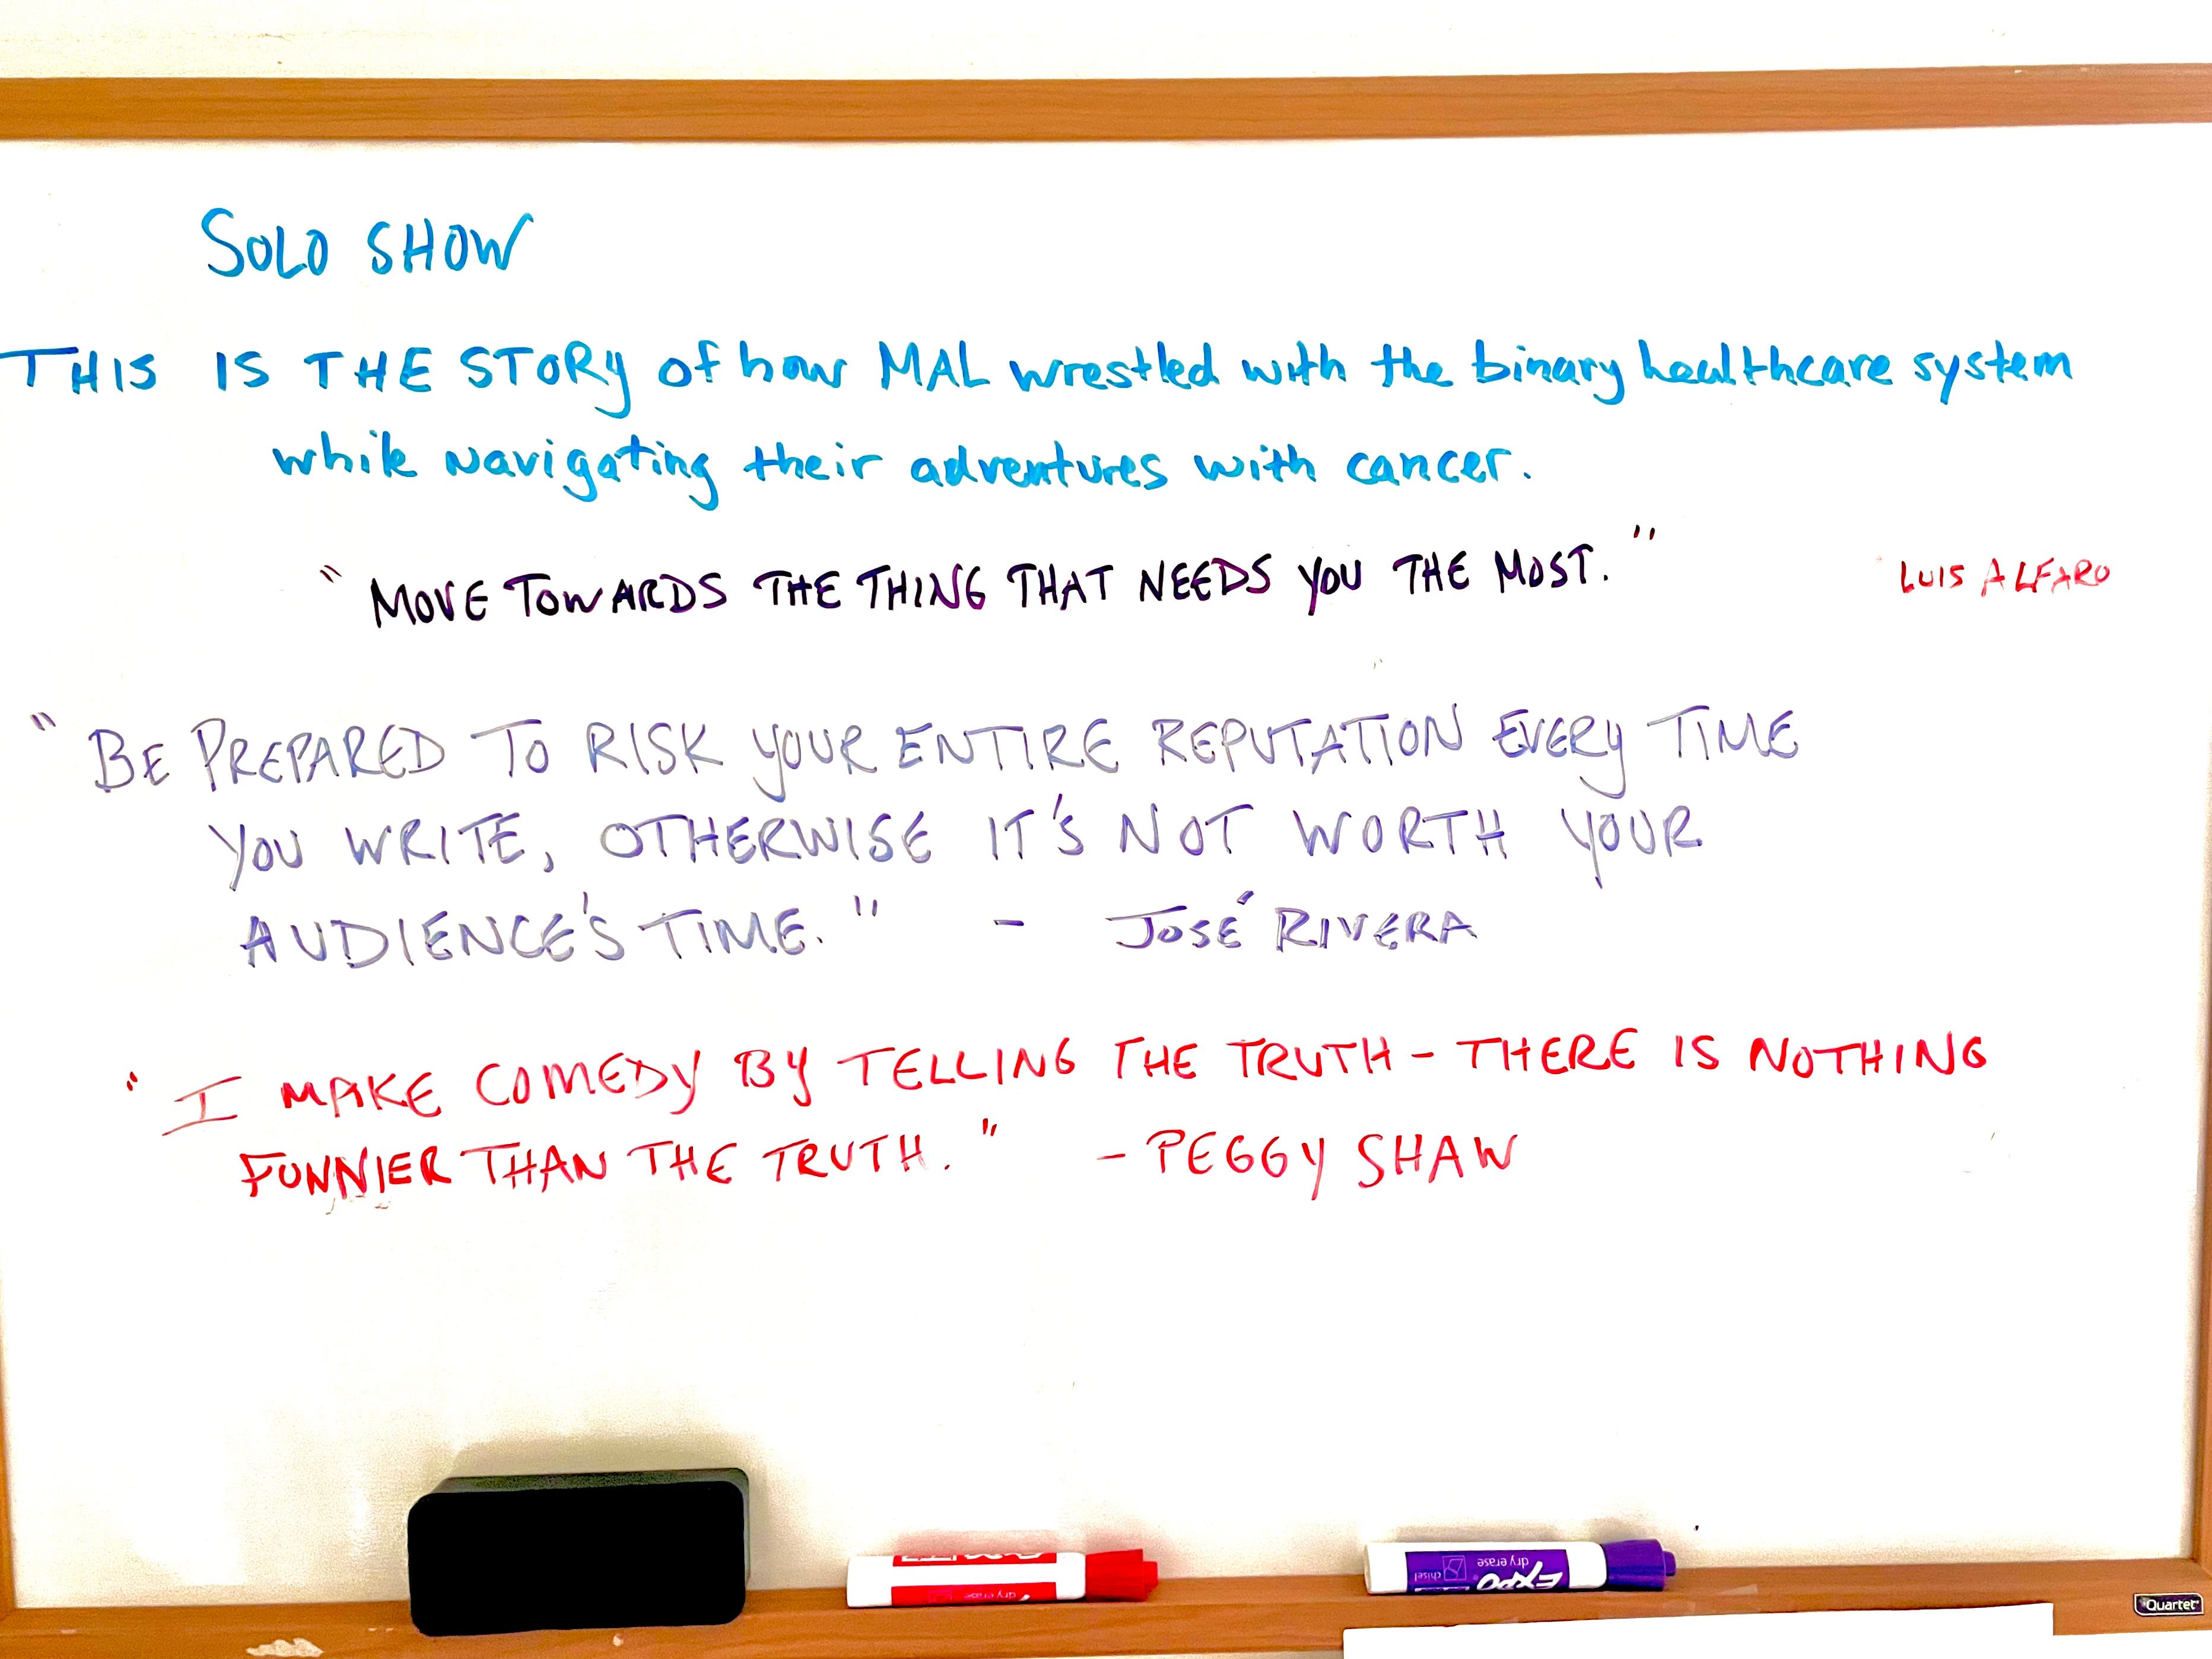 SOLO SHOW
THIS IS THE STORY of how MAL wrestled with the binary healthcare system
while navigating their adventures with cancer.
"MOVE TOWARDS THE THING THAT NEEDS YOU THE MOST." LUIS ALFARO
"BE PREPARED TO RISK YOUR ENTIRE REPUTATION EVERY TIME
YOU WRITE, OTHERWISE IT'S NOT WORTH YOUR
AUDIENCE'S TIME." - JOSÉ RIVERA
"I MAKE COMEDY BY TELLING THE TRUTH - THERE IS NOTHING
FUNNIER THAN THE TRUTH." - PEGGY SHAW
dry erase
EXPO dry erase chisel
Quartet